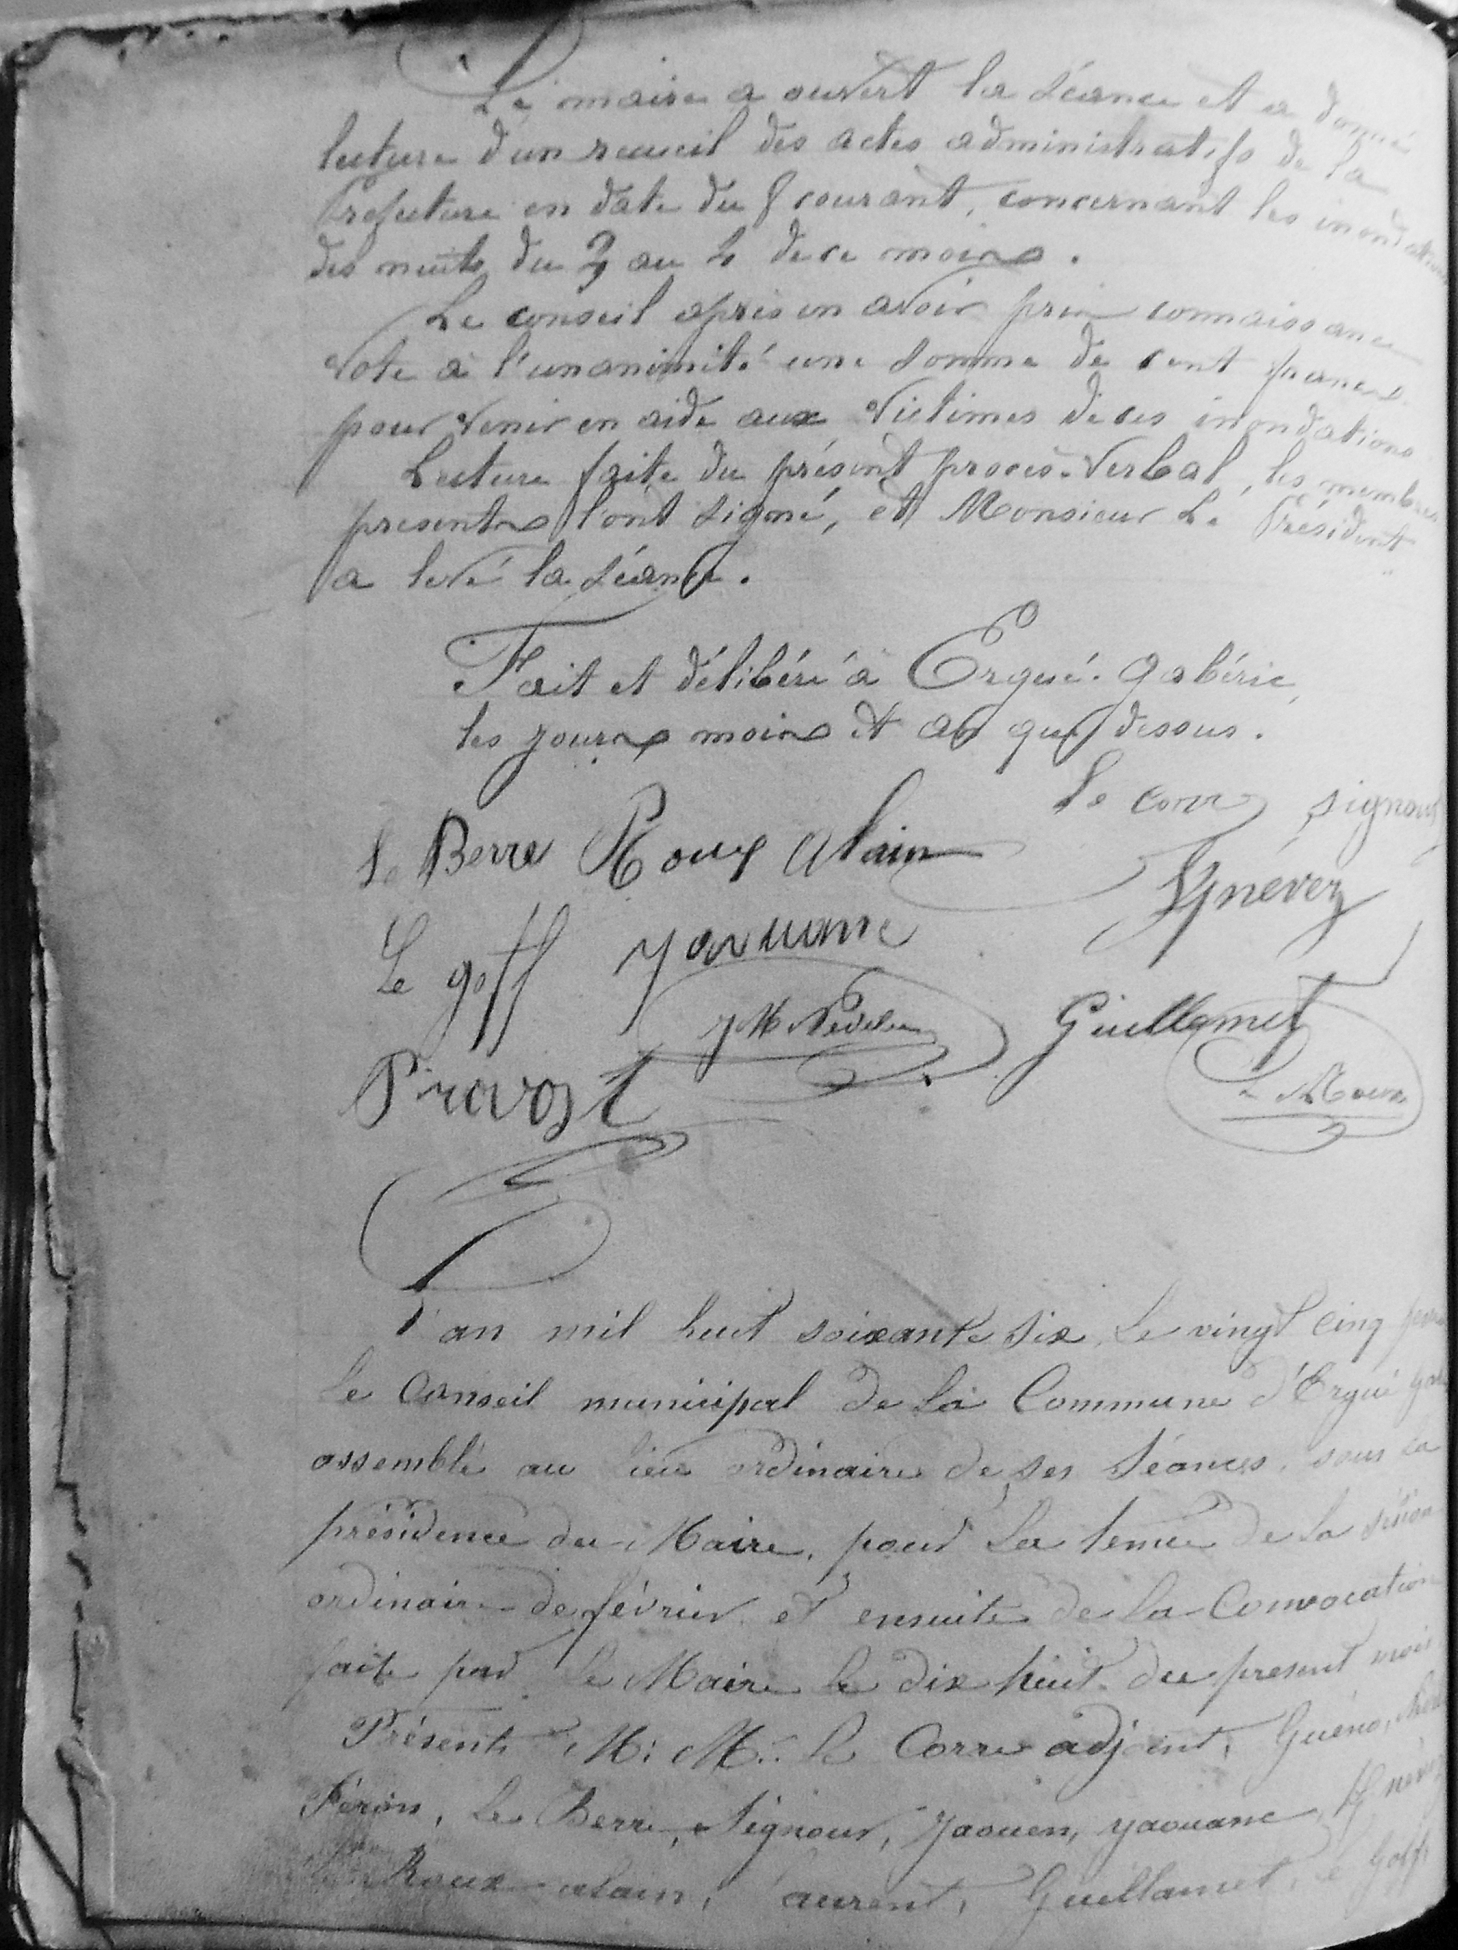 Le maire a ouvert la séance et a donné
lecture d'un recueil des actes administratifs de la
Prefecture en date du 8 courant, concernant les inondations
des nuits du 3 au 4 de ce mois.
Le conseil après en avoir pris connaissance
Vote à l'unanimité une somme de cent francs
pour venir en aide aux Victimes de ces inondations
Lecture faite du présent procès-Verbal, les membres
presents l'ont signé, et Monsieur Le Président
a levé la séance.
Fait et délibéré à Ergué-gabéric,
les jours mois et an que dessus.
Le corre signour
Le Berre Roux Alain
Le goff yaouanc
JM Nédélec Guillamet
Provost
L'an mil huit soixante six, Le vingt cinq
Le Conseil municipal de la Commune d'Ergué
assemblé au lieu ordinaire de ses séances, sous la
présidence du Maire, pour la tenue de la session
ordinaire de février et ensuite de la Convocation
faite par le Maire le dix huit du present mois
Présents M: M: le Corre adjoint, Guéno,
Féron, Le Berre, Signour, Yaouen, yaouanc
Roux alain, Laurent, Guillamet, le Goff